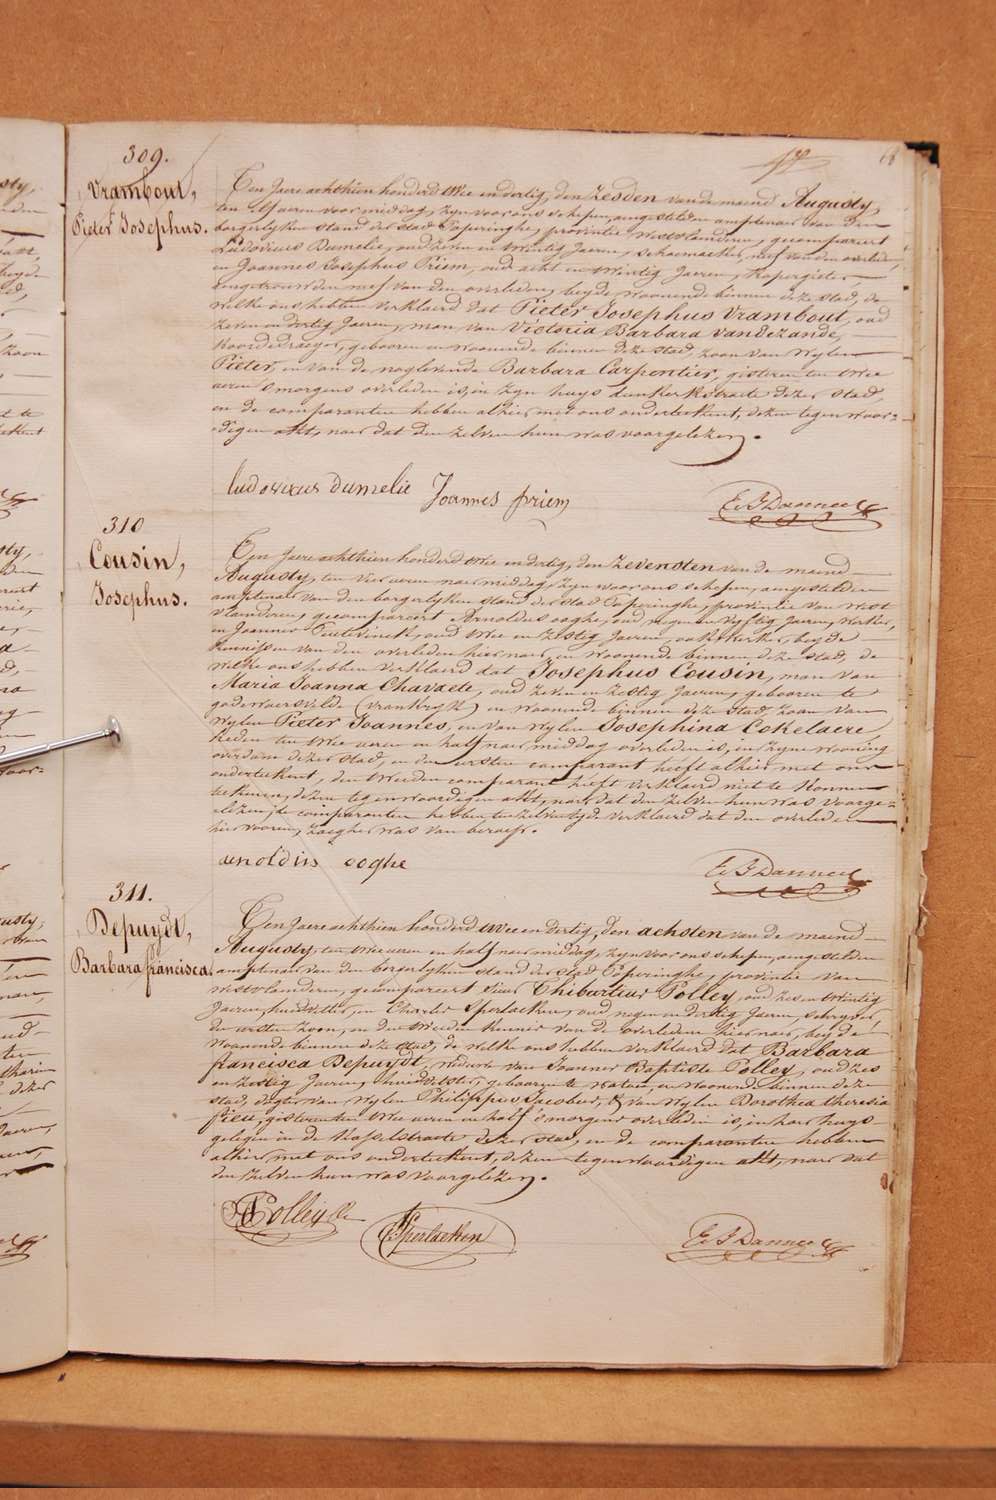 309.
Vrambout,
Pieter Josephus.
Ten Jaere achthien honderd twee en dertig, den zesden van de maend Augusty,
ten elf uren voor middag, zyn voor ons schepen, aengestelden amptenaer van den
borgerlyken stand der stad Poperinghe, provintie Westvlanderen, gecompareert
Ludovicus Dumelie, oud zeven en twintig Jaeren, schoemaeker, nef van den overleden,
en Joannes Josephus Priem, oud acht en twintig Jaeren, kopergieter,
aengetrouwden nef van den overleden, beyde woonende binnen deze stad, de
welke ons hebben verklaerd dat Pieter Josephus Vrambout, oud
zeven en dertig Jaeren, man van Victoria Barbara Vandezande,
koordedraeyer, gebooren en woonende binnen deze stad, zoon van wylen
Pieter, en van de naglevende Barbara Carpentier, gisteren ten twee
uren 's morgens overleden is, in zyn huys duinkerkstraete dezer stad,
en de comparanten hebben alhier met ons onderteekent, dezen tegenwoor-
digen akt, naer dat den zelven hun was voorgelezen.
ludovicus dumelie Joannes priem
310
Cousin,
Josephus.
Ten Jaere achthien honderd twee en dertig, den zevensten van de maend
Augusty, ten vier uren naer middag, zyn voor ons schepen, aengestelden
amptenaer van den borgerlyken stand der stad Poperinghe, provintie van West
vlanderen, gecompareert Arnoldus ooghe, oud negen en vyftig Jaeren, werker,
en Joannes, oud twee en zestig Jaeren, ook werker, beyde
kennissen van den overleden hier naer, en woonende binnen deze stad, de
welke ons hebben verklaerd dat Josephus Cousin, man van
Maria Joanna Chavaete, oud zeven en zestig Jaeren, gebooren te
godewaersvelde (vrankryk) en woonende binnen deze stad, zoon van
wylen Pieter Joannes, en van wylen Josephina Cokelaere,
heden ten twee uren en half naer middag overleden is, in zyne wooning
overdam dezer stad, en den eersten comparant heeft alhier met ons
onderteekent, den tweeden comparant heeft verklaerd niet te konnen
teekenen, dezen tegenwoordigen akt, naer dat den zelven hun was voorge-
lezen, de comparanten hebben ten zelven tyde verklaerd dat den overleden
hier vooren, zaegher was van beroep.
arnoldus ooghe
311.
Depuydt,
Barbara francisca.
Ten Jaere achthien honderd twee en dertig, den achsten van de maend
Augusty, ten twee uren en half naer middag, zyn voor ons schepen, aengestelden
amptenaer van den borgerlyken stand der stad Poperinghe, provintie van
westvlanderen, gecompareert Sieur Thiburtius Polley, oud zes en twintig
Jaeren, huidvetter, en Charles Sperlaeken, oud negen en dertig Jaeren, schryver,
den eersten zoon, en den tweeden kennis van de overledene hier naer, beyde
woonende binnen deze stad, de welke ons hebben verklaerd dat Barbara
francisca Depuydt, weduwe van Joannes Baptiste Polley, oud zes
en zestig Jaeren, huidvetster, gebooren te watou, en woonende binnen deze
stad, dogter van wylen Philippus Jacobus, & van wylen Dorothea theresia
fieu, gisteren ten twee uren en half 's morgens overleden is, in haer huys
gelegen in de kasselstraete dezer stad, en de comparanten hebben
alhier met ons onderteekent, dezen tegenwoordigen akt, naer dat
den zelven hun was voorgelezen.
Polley
Sperlaeken